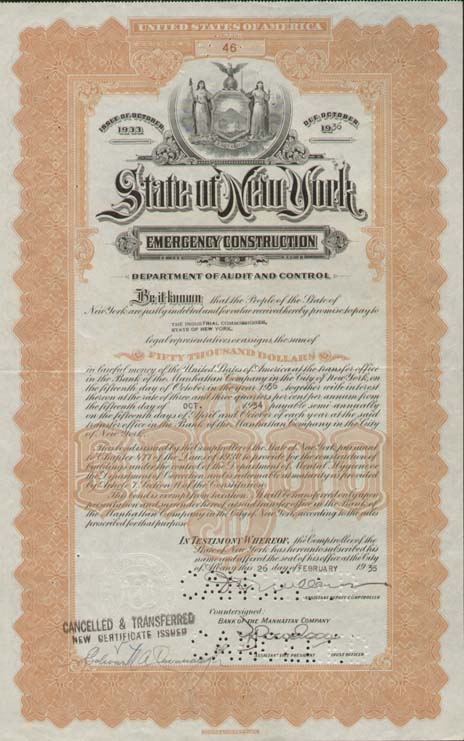 UNITED STATES OF AMERICA
46
ISSUE OF OCTOBER,
1933
DUE OCTOBER,
1936
State of New York
EMERGENCY CONSTRUCTION
DEPARTMENT OF AUDIT AND CONTROL
Be it known that the People of the State of
New York are justly indebted and for value received hereby promise to pay to
THE INDUSTRIAL COMMISSIONER,
STATE OF NEW YORK,
legal representatives or assigns, the sum of
FIFTY THOUSAND DOLLARS
in lawful money of the United States of America at the transfer office
in the Bank of the Manhattan Company in the City of New York, on
the fifteenth day of October in the year 1936 together with interest
thereon at the rate of three and three quarters per cent per annum from
the fifteenth day of OCT. 1934 payable semi-annually
on the fifteenth days of April and October of each year at the said
transfer office in the Bank of the Manhattan Company in the City
of New York.
This bond is issued by the Comptroller of the State of New York, pursuant
to Chapter of the Laws of to provide for the construction of
buildings under the control of the Department of Mental Hygiene or
the Department of Correction and is
by Article 7, Section of the Constitution.
This bond is exempt from taxation. It will be transferred only upon
presentation and surrender hereof at said transfer office in the Bank of
the Manhattan Company in the City of New York, according to the rules
prescribed for that purpose.
IN TESTIMONY WHEREOF, the Comptroller of the
State of New York has hereunto subscribed his
name and affixed the seal of his office at the City
of Albany this 26 day of FEBRUARY 1935
ASSISTANT DEPUTY COMPTROLLER
Countersigned:
BANK OF THE MANHATTAN COMPANY
ASSISTANT TRUST OFFICER
CANCELLED & TRANSFERRED
NEW CERTIFICATE ISSUED